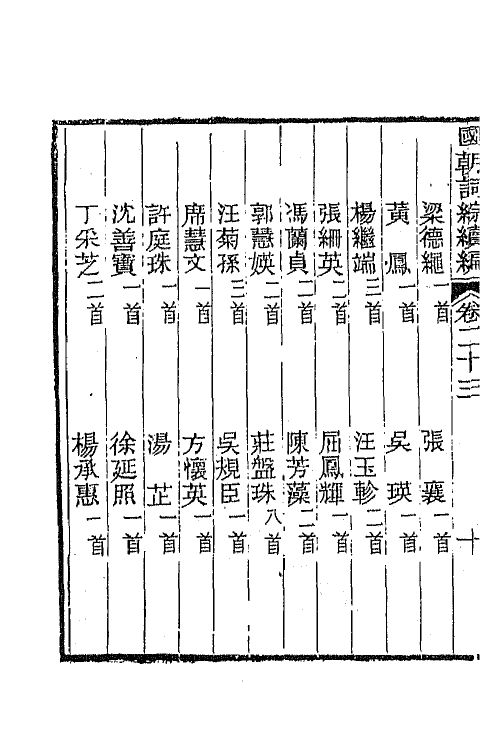 國朝詞綜續編 卷二十三 十
梁德繩一首 張襄一首
黃鳳一首 吳瑛一首
楊繼端三首 汪玉軫二首
張緗英二首 屈鳳輝一首
馮蘭貞二首 陳芳藻二首
郭慧媖二首 莊盤珠八首
汪菊孫三首 吳規臣一首
席慧文一首 方懷英一首
許庭珠一首 湯芷一首
沈善寶一首 徐延照一首
丁采芝二首 楊承惠一首